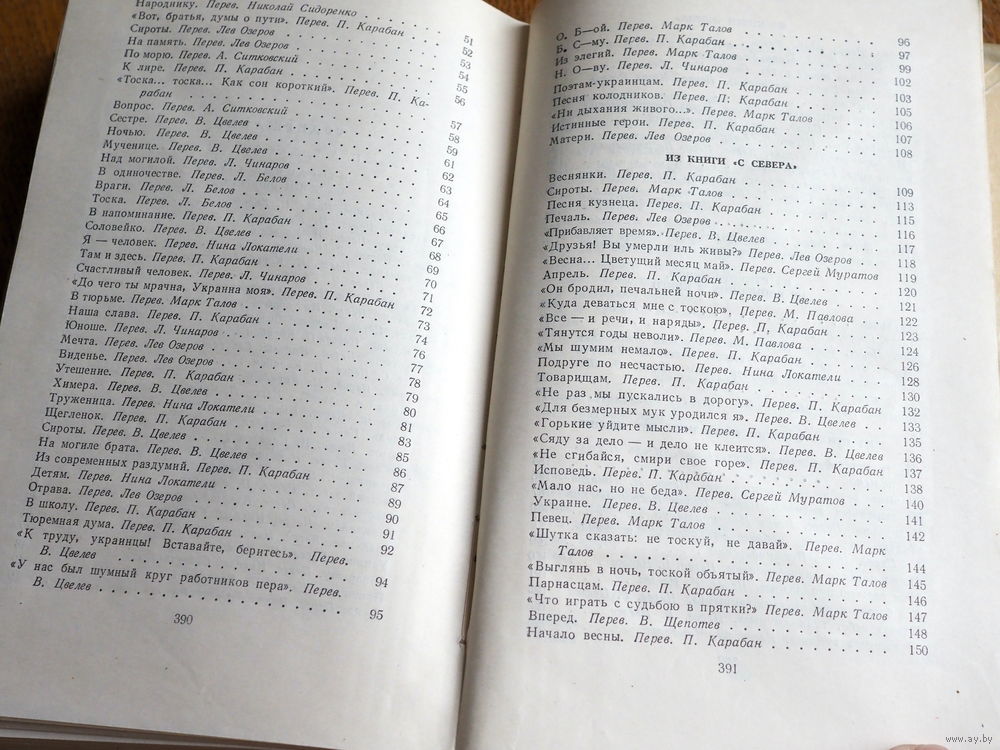 Народнику. Перев. Николай Сидоренко . . . 51
«Вот, братья, думы о пути». Перев. П. Карабан . . . 52
Сироты. Перев. Лев Озеров . . . 53
На память. Перев. Лев Озеров . . . 54
По морю. Перев. А. Ситковский . . . 55
К ляре. Перев. П. Карабан . . . 56
«Тоска... тоска... Как сон короткий». Перев. П. Ка-
рабан . . . 57
Вопрос. Перев. А. Ситковский . . . 58
Сестре. Перев. В. Цвелев . . . 59
Ночью. Перев. В. Цвелев . . . 61
Мученице. Перев. В. Цвелев . . . 62
Над могилой. Перев. Л. Чинаров . . . 63
В одиночестве. Перев. Л. Белов . . . 64
Враги. Перев. Л. Белов . . . 65
Тоска. Перев. Л. Белов . . . 66
В напоминание. Перев. П. Карабан . . . 67
Соловейко. Перев. В. Цвелев . . . 68
Я — человек. Перев. Нина Локатели . . . 69
Там и здесь. Перев. П. Карабан . . . 70
Счастливый человек. Перев. Л. Чинаров . . . 71
«До чего ты мрачна, Украина моя». Перев. П. Карабан 72
В тюрьме. Перев. Марк Талов . . . 73
Наша слава. Перев. П. Карабан . . . 74
Юноше. Перев. Л. Чинаров . . . 76
Мечта. Перев. Лев Озеров . . . 77
Виденье. Перев. Лев Озеров . . . 78
Утешение. Перев. П. Карабан . . . 79
Химера. Перев. В. Цвелев . . . 80
Труженица. Перев. Нина Локатели . . . 81
Щегленок. Перев. П. Карабан . . . 83
Сироты. Перев. В. Цвелев . . . 85
На могиле брата. Перев. В. Цвелев . . . 86
Из современных раздумий. Перев. П. Карабан . . . 87
Детям. Перев. Нина Локатели . . . 89
Отрава. Перев. Лев Озеров . . . 90
В школу. Перев. П. Карабан . . . 91
Тюремная дума. Перев. П. Карабан . . . 92
«К труду, украинцы! Вставайте, беритесь». Перев.
В. Цвелев . . . 94
«У нас был шумный круг работников пера». Перев.
В. Цвелев . . . 95
390
О. Б—ой. Перев. Марк Талов . . . 96
Б. С—му. Перев. П. Карабан . . . 97
Из элегий. Перев. Марк Талов . . . 99
Н. О—ву. Перев. Л. Чинаров . . . 102
Поэтам-украинцам. Перев. П. Карабан . . . 103
Песня колодников. Перев. П. Карабан . . . 105
«Ни дыхания живого...». Перев. Марк Талов . . . 106
Истинные герои. Перев. П. Карабан . . . 107
Матери. Перев. Лев Озеров . . . 108
ИЗ КНИГИ «С СЕВЕРА»
Веснянки. Перев. П. Карабан . . . 109
Сироты. Перев. Марк Талов . . . 113
Песня кузнеца. Перев. П. Карабан . . . 115
Печаль. Перев. Лев Озеров . . . 116
«Прибавляет время». Перев. В. Цвелев . . . 117
«Друзья! Вы умерли иль живы?» Перев. Лев Озеров . . . 118
«Весна... Цветущий месяц май». Перев. Сергей Муратов 119
Апрель. Перев. П. Карабан . . . 120
«Он бродил, печальней ночи». Перев. В. Цвелев . . . 121
«Куда деваться мне с тоскою», Перев. М. Павлова . . . 122
«Все — и речи, и наряды». Перев. П. Карабан . . . 123
«Тянутся годы неволи». Перев. М. Павлова . . . 124
«Мы шумим немало». Перев. П. Карабан . . . 126
Подруге по несчастью. Перев. Нина Локатели . . . 128
Товарищам. Перев. П. Карабан . . . 130
«Не раз мы пускались в дорогу». Перев. П. Карабан 132
«Для безмерных мук уродился я». Перев. В. Цвелев . . . 133
«Горькие уйдите мысли». Перев. П. Карабан . . . 135
«Сяду за дело — и дело не клеится». Перев. В. Цвелев 136
«Не сгибайся, смири свое горе». Перев. П. Карабан 137
Исповедь. Перев. П. Карабан . . . 138
«Мало нас, но не беда». Перев. Сергей Муратов . . . 140
Украине. Перев. В. Цвелев . . . 141
Певец. Перев. Марк Талов . . . 142
«Шутка сказать: не тоскуй, не давай». Перев. Марк
Талов . . . 144
«Выглянь в ночь, тоской объятый». Перев. Марк Талов 145
Парнасцам. Перев. П. Карабан . . . 146
«Что играть с судьбою в прятки?» Перев. Марк Талов 147
Вперед. Перев. В. Щепотев . . . 148
Начало весны. Перев. П. Карабан . . . 150
391
www.ay.by